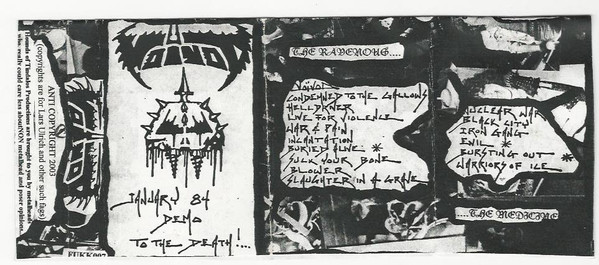 Hounds of Tindalos Productions are brought to you by metalheads
who really could care less about NON metalhead and poser opinions.
ANTI COPYRIGHT 2003
(copyrights are for Lars Ulrich and other such fags)
VOIVOD
FUKK002
VOIVOD
JANUARY 84
DEMO
TO THE DEATH!...
THE RAVENOUS....
VOÏVOD
CONDEMNED TO THE GALLOWS
HELLDRIVER
LIVE FOR VIOLENCE
WAR & PAIN
INCANTATION
BURIED ALIVE *
SUCK YOUR BONE
BLOWER
SLAUGHTER IN A GRAVE
NUCLEAR WAR
BLACK CITY
IRON GANG
EVIL *
BURSTING OUT *
WARRIORS OF ICE
....THE MEDICINE